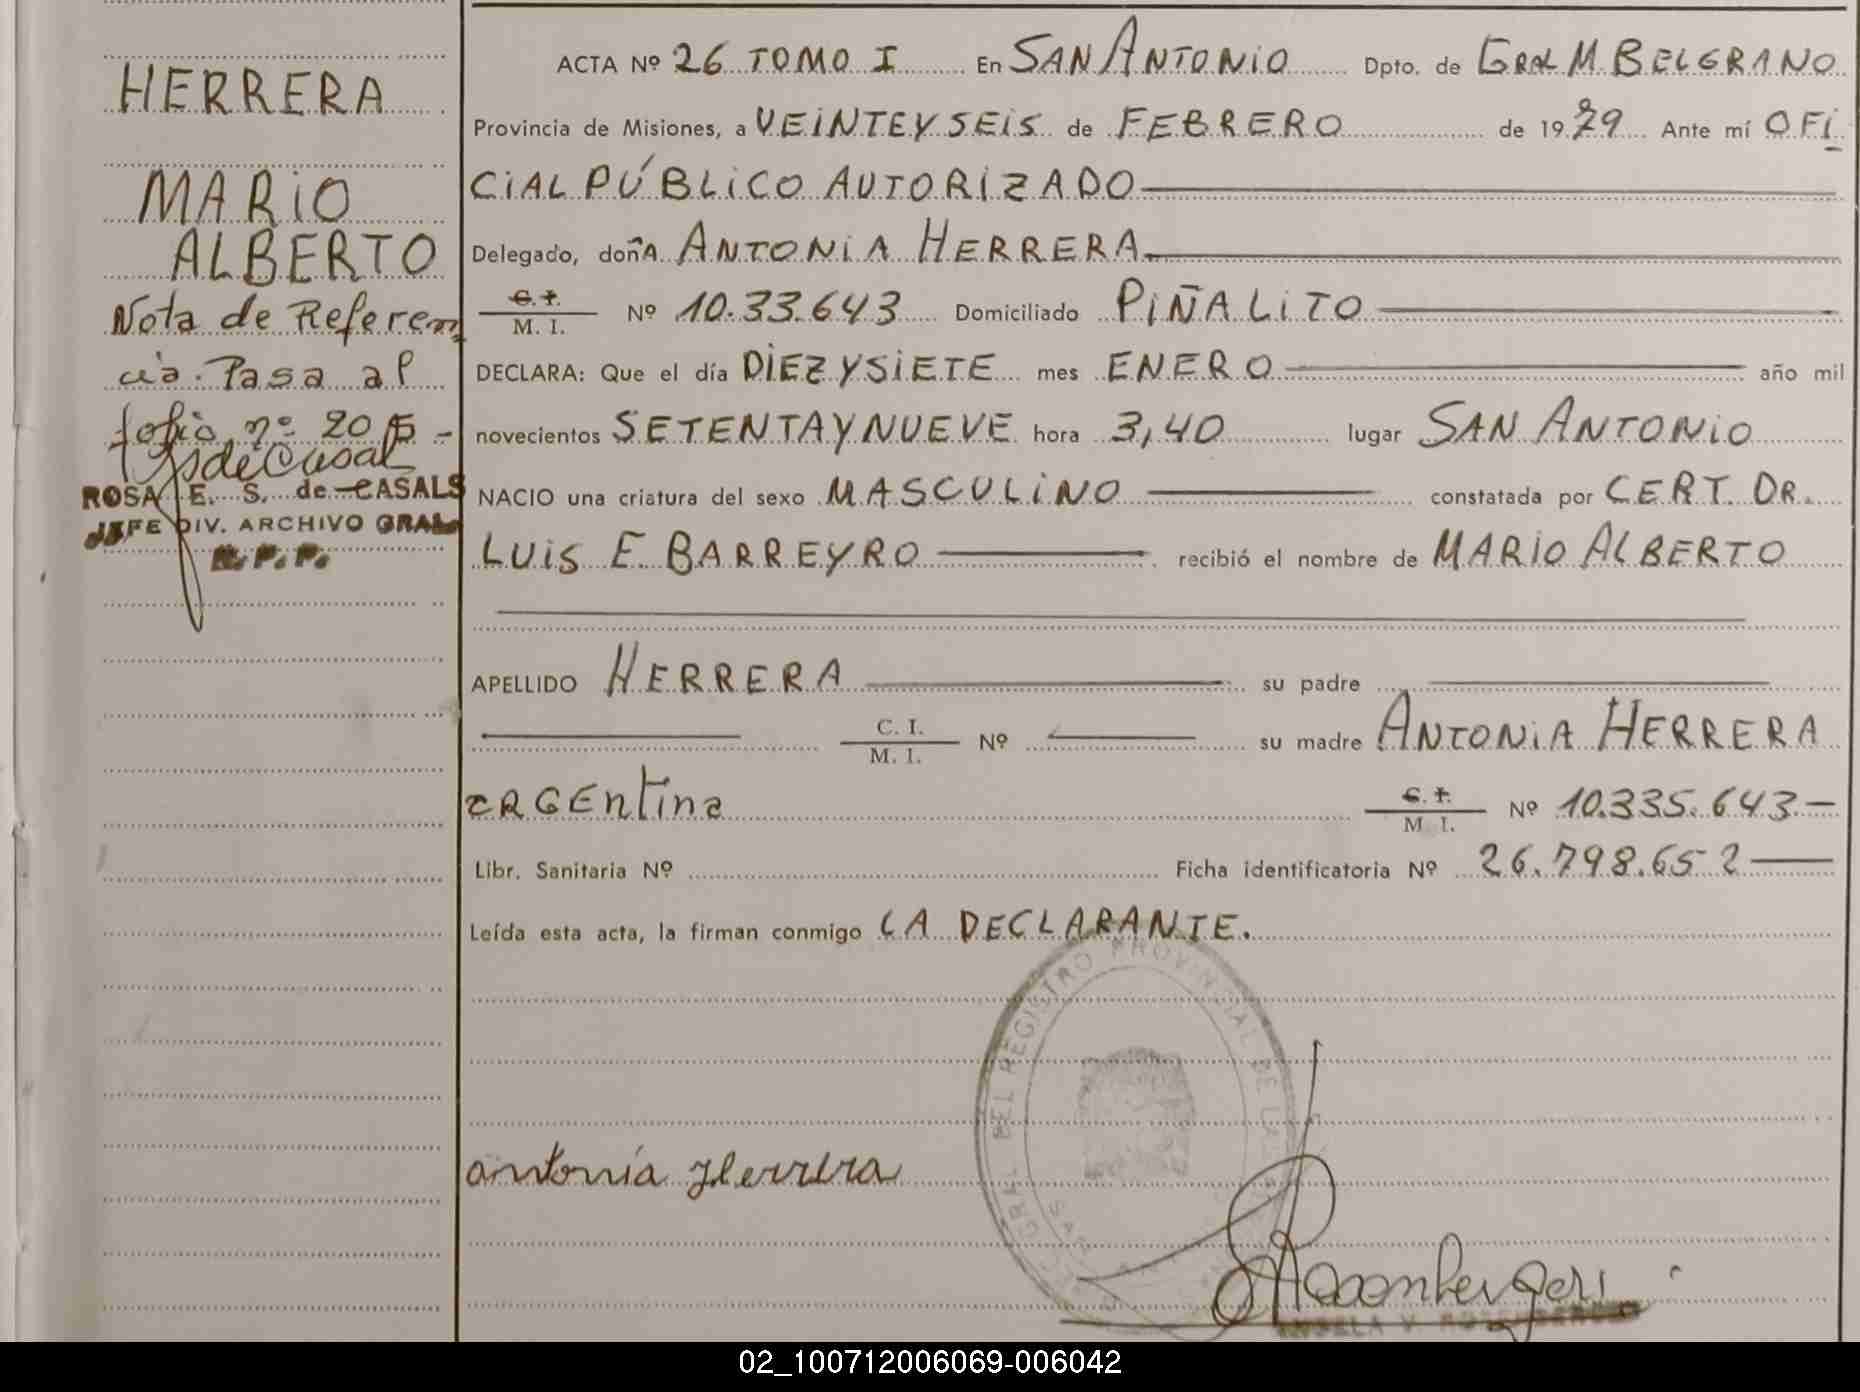 HERRERA
MARIO
ALBERTO
Nota de Referen
cia. Pasa al
folio nº 205 -
ROSA E. S. de CASALS
JEFE DIV. ARCHIVO GRAL.
R. P. P.
ACTA Nº 26 TOMO I En SAN ANTONIO Dpto. de GRAL M. BELGRANO
Provincia de Misiones, a VEINTEYSEIS de FEBRERO de 1979 Ante mí OFI
CIAL PÚBLICO AUTORIZADO
Delegado, doñA ANTONIA HERRERA
C. I.
M. I. Nº 10.33.643 Domiciliado PIÑALITO
DECLARA: Que el día DIEZYSIETE mes ENERO año mil
novecientos SETENTAYNUEVE hora 3,40 lugar SAN ANTONIO
NACIO una criatura del sexo MASCULINO constatada por CERT. DR.
LUIS E. BARREYRO recibió el nombre de MARIO ALBERTO
APELLIDO HERRERA su padre
C. I.
M. I. Nº su madre ANTONIA HERRERA
ARGEntina C. I.
M. I. Nº 10.335.643.—
Libr. Sanitaria Nº Ficha identificatoria Nº 26.798.652
Leída esta acta, la firman conmigo LA DECLARANTE.
DEL REGISTRO PROVINCIAL DE LA
antonia Herrera
ANGELA V.
02_100712006069-006042